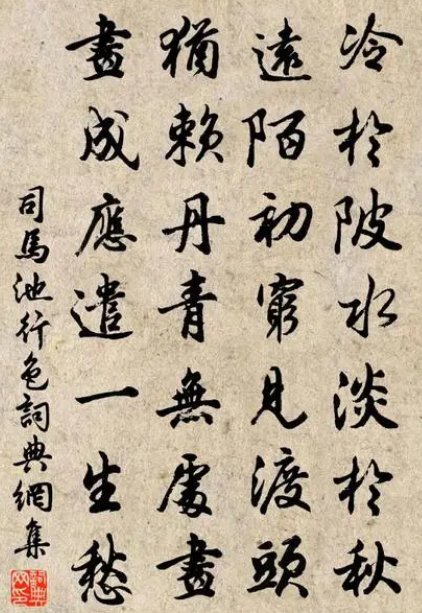 冷於陂水淡於秋
遠陌初窮見渡頭
猶賴丹青無處畫
畫成應遣一生愁
司馬池行色詞典網集